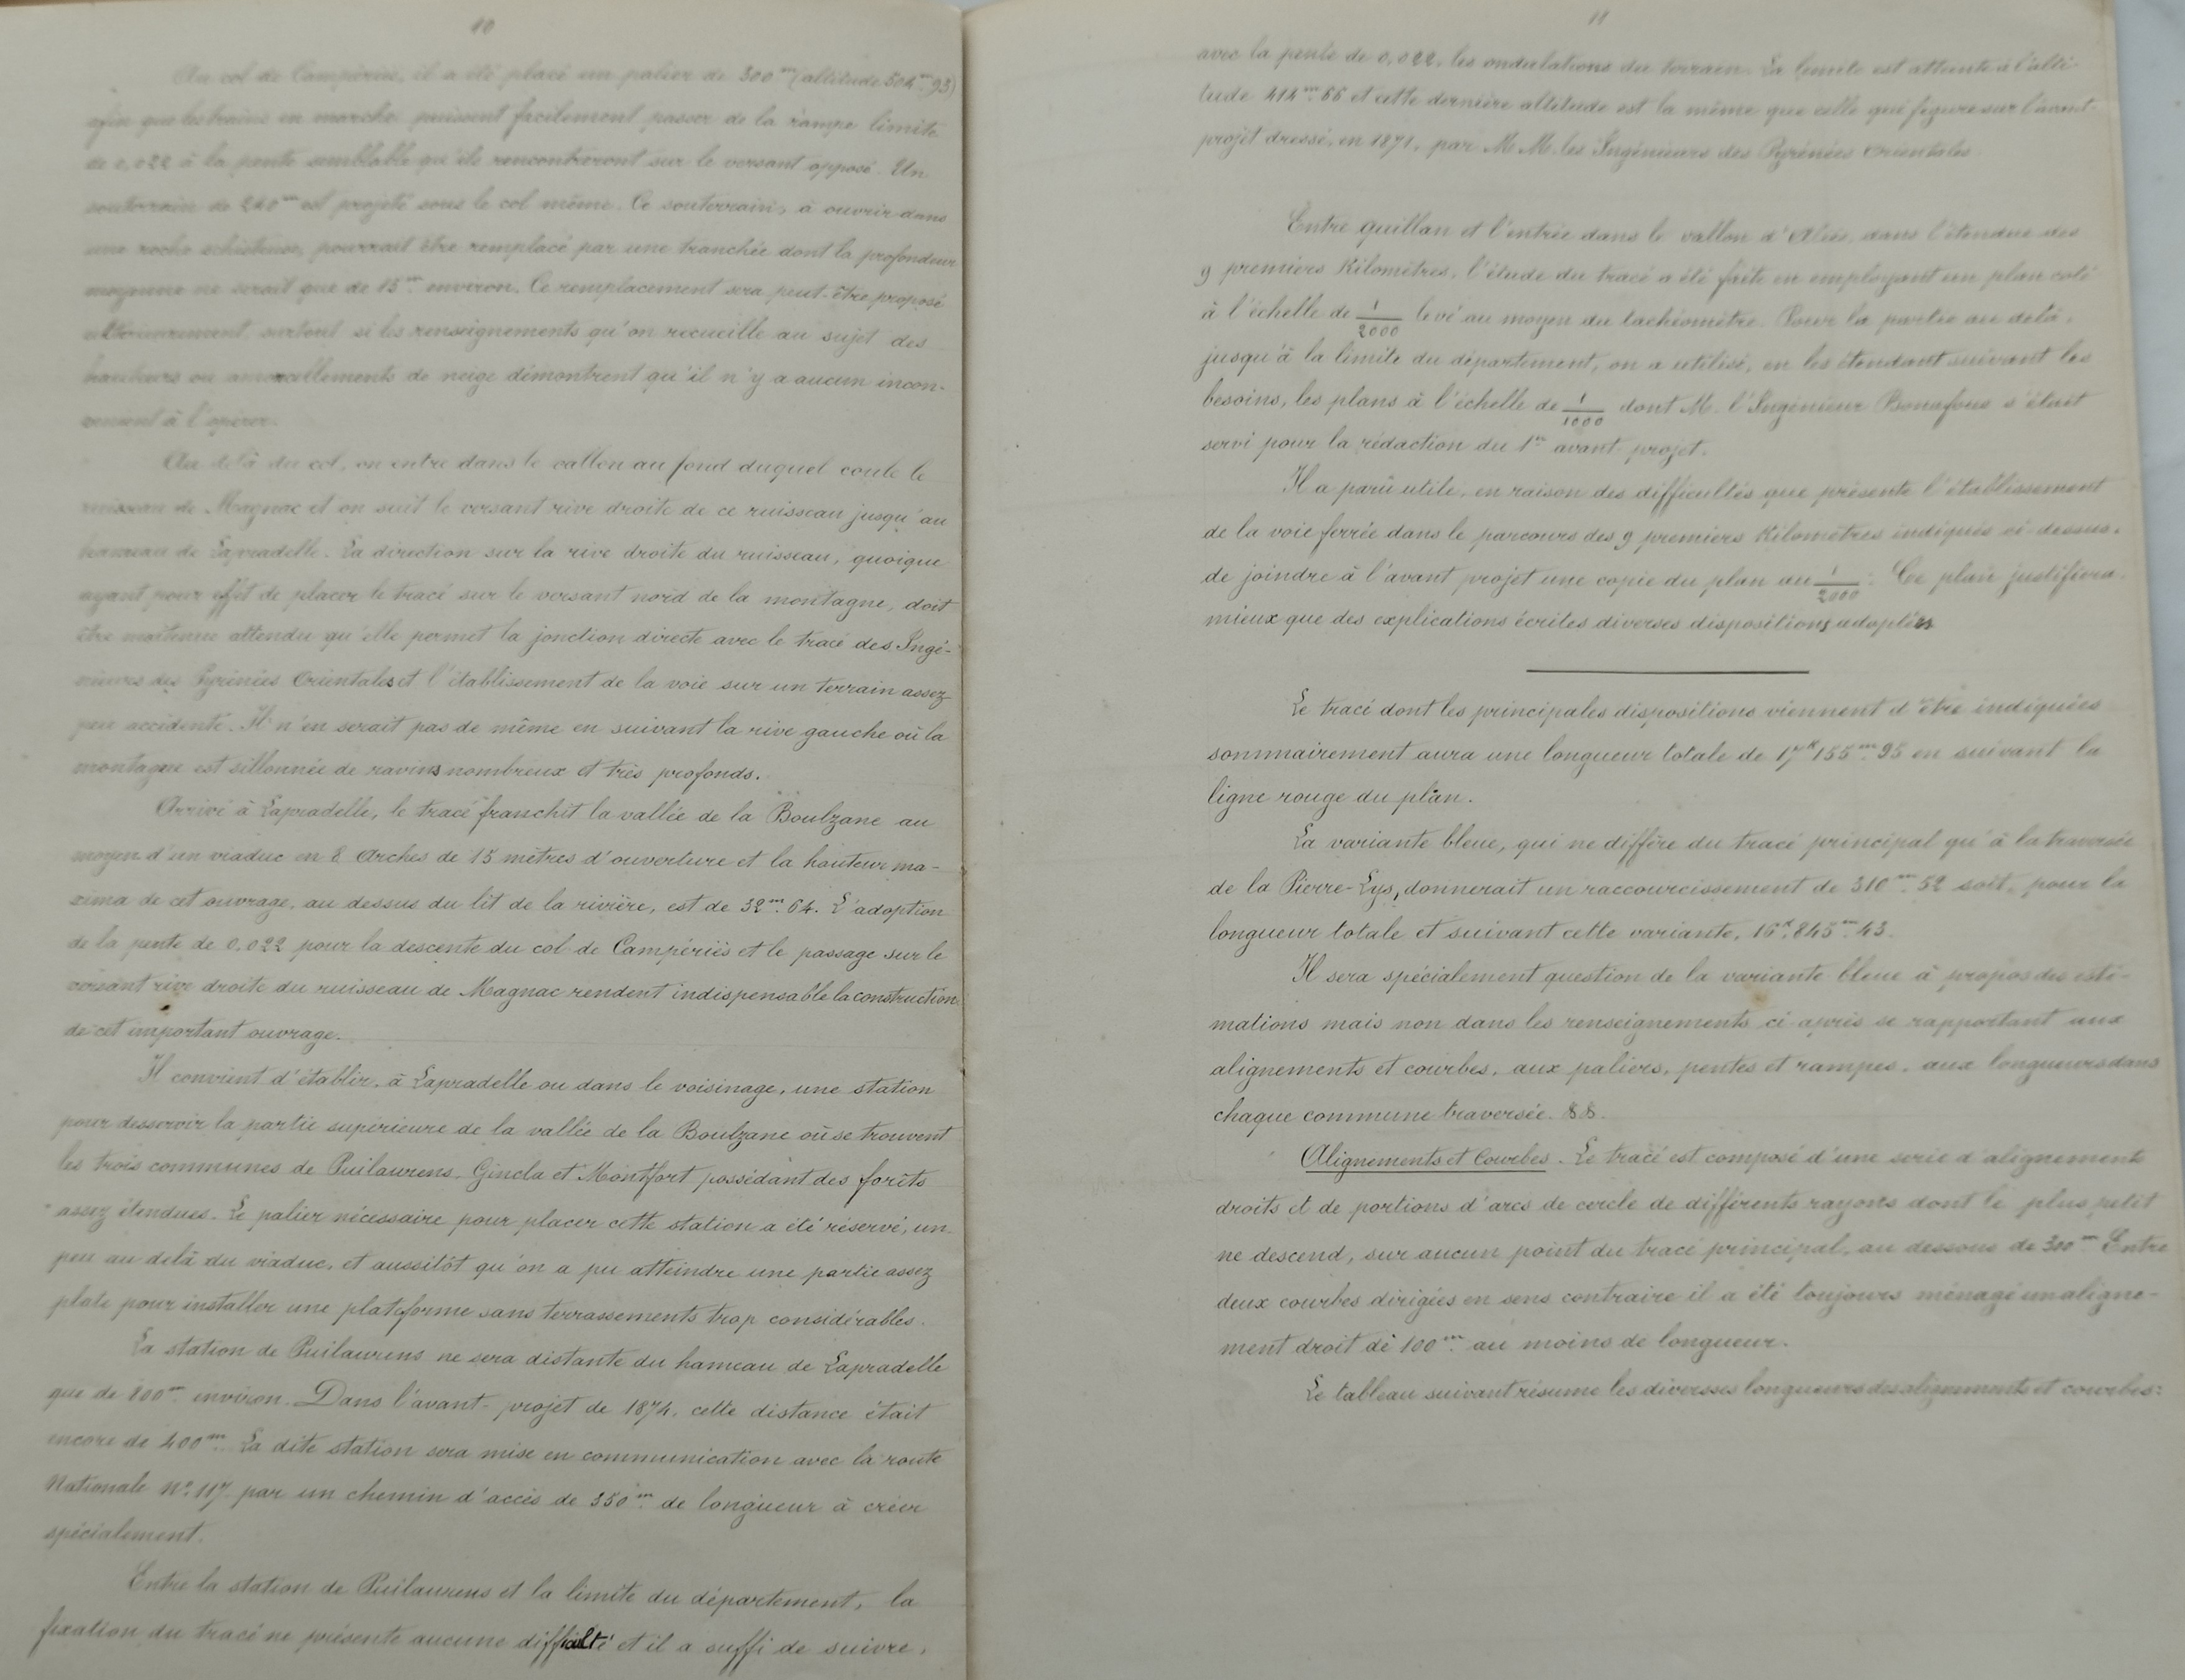 10
Au col de Campériès, il a été placé un palier de 300m (altitude 504m.93)
afin que les trains en marche puissent facilement passer de la rampe limite
de 0,022 à la pente semblable qu'ils rencontreront sur le versant opposé. Un
souterrain de 240m est projeté sous le col même. Ce souterrain, à ouvrir dans
une roche schisteuse, pourrait être remplacé par une tranchée dont la profondeur
moyenne ne serait que de 15m. environ. Ce remplacement sera peut-être proposé
ultérieurement, surtout si les renseignements qu'on recueille au sujet des
hauteurs ou amoncellements de neige démontrent qu'il n'y a aucun incon-
vénient à l'opérer.
Au delà du col, on entre dans le vallon au fond duquel coule le
ruisseau de Magnac et on suit le versant rive droite de ce ruisseau jusqu'au
hameau de Lapradelle. La direction sur la rive droite du ruisseau, quoique
ayant pour effet de placer le tracé sur le versant nord de la montagne, doit
être maitenue attendu qu'elle permet la jonction directe avec le tracé des Ingé-
nieurs des Pyrénées Orientales et l'établissement de la voie sur un terrain assez
peu accidenté. Il n'en serait pas de même en suivant la rive gauche où la
montagne est sillonnée de ravins nombreux et très profonds.
Arrivé à Lapradelle, le tracé franchit la vallée de la Boulzane au
moyen d'un viaduc en 8 Arches de 15 mètres d'ouverture et la hauteur ma-
xima de cet ouvrage, au dessus du lit de la rivière, est de 32m.64. L'adoption
de la pente de 0,022 pour la descente du col de Campériès et le passage sur le
versant rive droite du ruisseau de Magnac rendent indispensable la construction
de cet important ouvrage.
Il convient d'établir, à Lapradelle ou dans le voisinage, une station
pour desservir la partie supérieure de la vallée de la Boulzane où se trouvent
les trois communes de Puilaurens, Gincla et Montfort possédant des forêts
assez étendues. Le palier nécessaire pour placer cette station a été réservé, un
peu au delà du viaduc, et aussitôt qu'on a pu atteindre une partie assez
plate pour installer une plateforme sans terrassements trop considérables.
La station de Puilaurens ne sera distante du hameau de Lapradelle
que de 800m. environ. Dans l'avant-projet de 1874, cette distance était
encore de 400m. La dite station sera mise en communication avec la route
Nationale No 117 par un chemin d'accès de 350m. de longueur à créer
spécialement.
Entre la station de Puilaurens et la limite du département, la
fixation du tracé ne présente aucune difficulté et il a suffi de suivre,
11
avec la pente de 0,022, les ondulations du terrain. La limite est atteinte à l'alti-
tude 414m.66 et cette dernière altitude est la même que celle qui figure sur l'avant-
projet dressé, en 1871, par M M. les Ingénieurs des Pyrénées Orientales.
Entre Quillan et l'entrée dans le vallon d'Aliès, dans l'étendue des
9 premiers Kilomètres, l'étude du tracé a été faite en employant un plan coté
à l'échelle de 1/2000 levé au moyen du tachéomètre. Pour la partie au delà,
jusqu'à la limite du département, on a utilisé, en les étendant suivant les
besoins, les plans à l'échelle de 1/1000 dont M. l'Ingénieur Bonafous s'était
servi pour la rédaction du 1er avant-projet.
Il a parû utile, en raison des difficultés que présente l'établissement
de la voie ferrée dans le parcours des 9 premiers Kilomètres indiqués ci-dessus,
de joindre à l'avant projet une copie du plan au 1/2000. Ce plan justifiera
mieux que des explications écrites diverses dispositions adoptées
Le tracé dont les principales dispositions viennent d'être indiquées
sommairement aura une longueur totale de 17K155m.95 en suivant la
ligne rouge du plan.
La variante bleue, qui ne diffère du tracé principal qu'à la traversée
de la Pierre-Lys, donnerait un raccourcissement de 310m.52 soit, pour la
longueur totale et suivant cette variante, 16K.845m.43.
Il sera spécialement question de la variante bleue à propos des esti-
mations mais non dans les renseignements ci-après se rapportant aux
alignements et courbes, aux paliers, pentes et rampes, aux longueurs dans
chaque commune traversée. &&.
Alignements et Courbes. Le tracé est composé d'une serie d'alignements
droits et de portions d'arcs de cercle de différents rayons dont le plus petit
ne descend, sur aucun point du tracé principal, au dessous de 300m Entre
deux courbes dirigées en sens contraire il a été toujours ménagé un aligne-
ment droit de 100m. au moins de longueur.
Le tableau suivant résume les diverses longueurs des alignements et courbes: